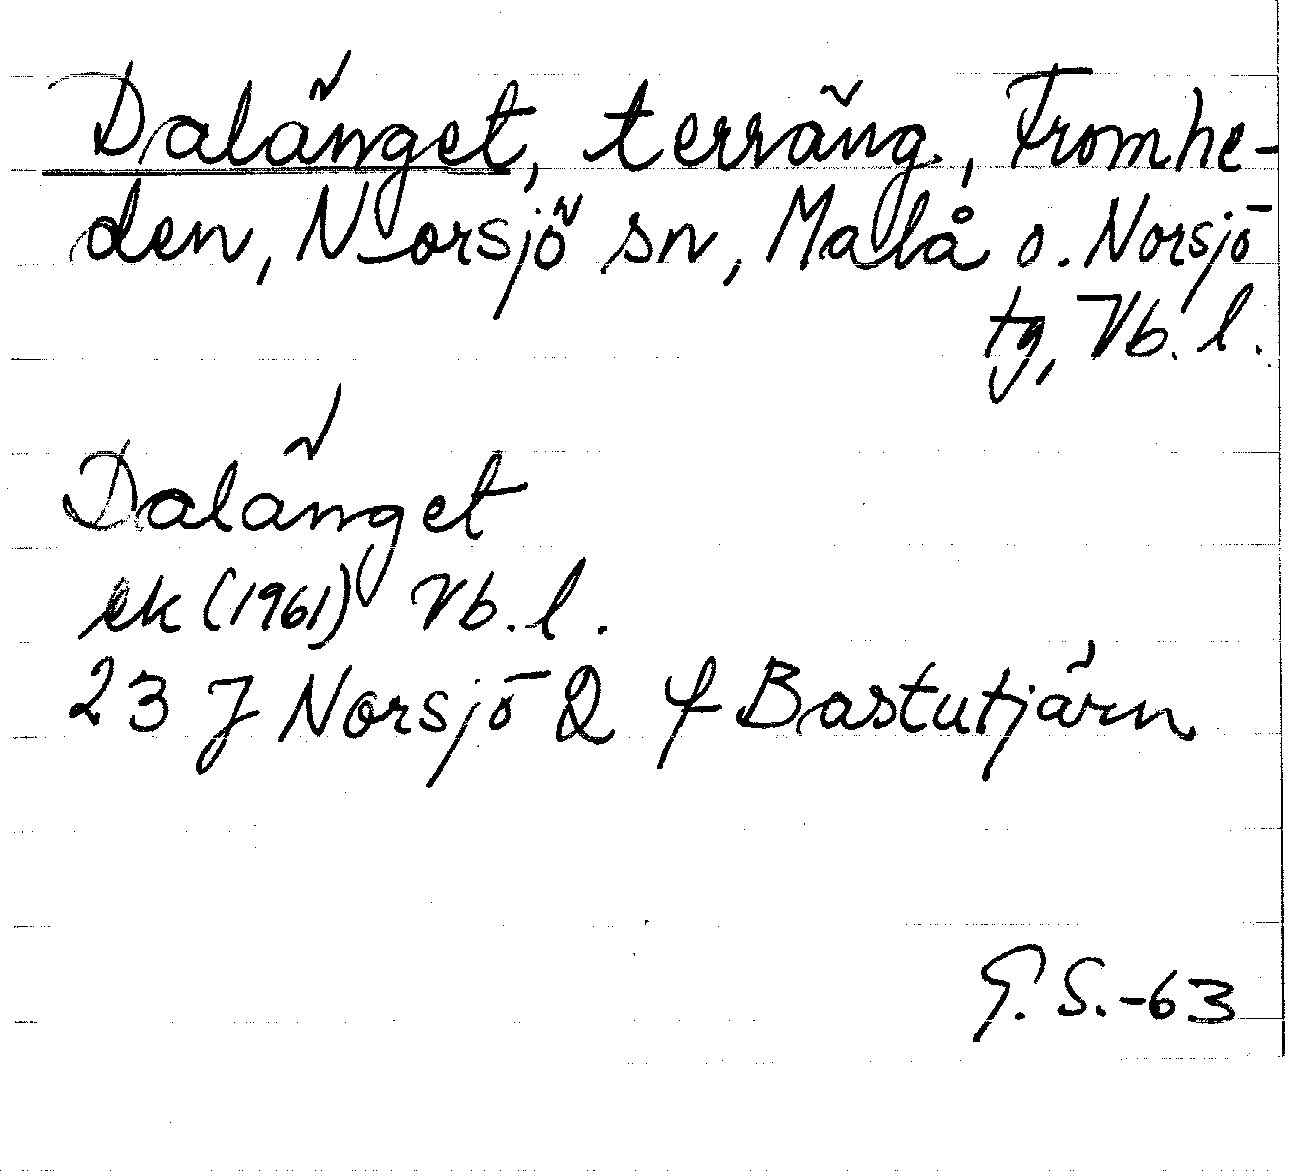 Dalänget, terräng, Fromhe-
den, Norsjö sn, Malå o. Norsjö
tg, Vb. l.
Dalänget
ek (1961) Vb. l.
23 J Norsjö 2 f Bastutjärn
G. S. -63